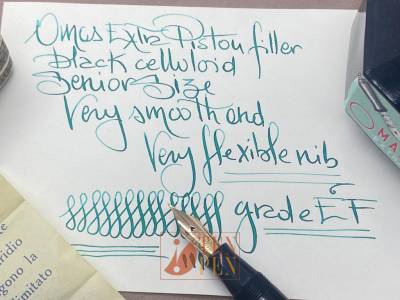 Omas Extra Piston filler
Black celluloid
Senior Size
Very smooth and
Very flexible nib
grade EF
PEN
PEN
OMA
idio
gono la
limitato